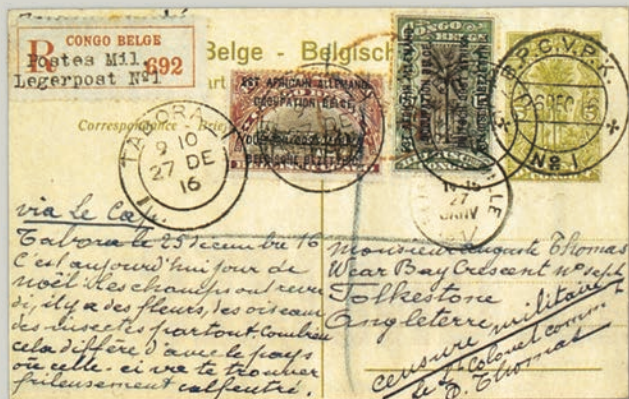 CONGO BELGE
R
Postes Mil.
Legerpost № 1
692
Belge - Belgisch
Correspondance
EST AFRICAIN ALLEMAND
OCCUPATION BELGE
CONGO BELGE
EST AFRICAIN ALLEMAND
OCCUPATION BELGE
B.P.C.V.P.K.
№ 1
TABORA
9 10
27 DE
16
27
JANV
via Le Cap.
Tabora le 25 décembre 16
C'est aujourd'hui jour de
noël: les champs ont rever
di, il y a des fleurs, des oiseaux
des insectes partout. Combien
cela diffère d'avec le pays
où celle-ci va te trouver
frileusement calfeutré.
Monsieur Auguste Thomas
Wear Bay Crescent n° sept
Folkestone
Angleterre
censure militaire
le Lt Colonel comm
Thomas